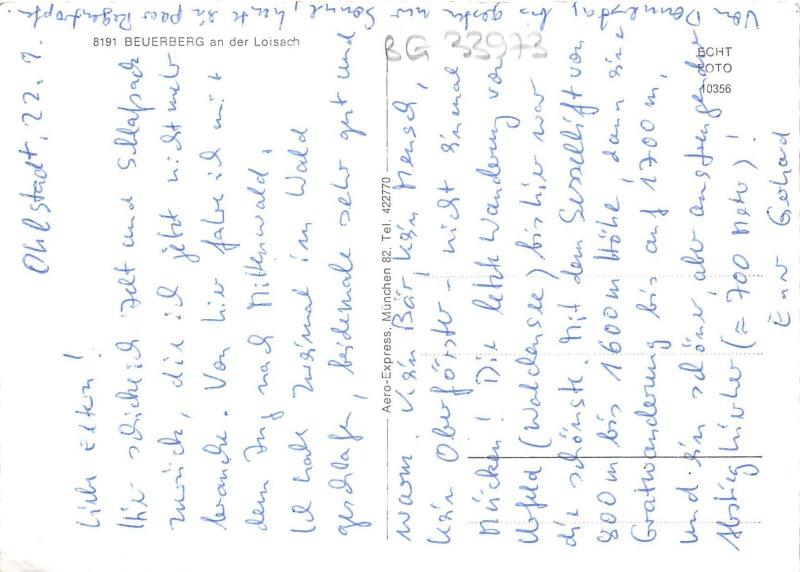 8191 BEUERBERG an der Loisach
BG 33973
ECHT
FOTO
10356
Aero-Express, München 82. Tel. 422770
Ohlstadt, 22.9.
Liebe Eltern!
Hier schicke ich Zelt und Schlafsack
zurück, die ich jetzt nicht mehr
brauche. Von hier fahre ich mit
dem Zug nach Mittenwald.
Ich habe zweimal im Wald
geschlafen, beidemale sehr gut und
warm. Kein Bär, kein Mensch,
kein Oberförster – nicht einmal
Mücken! Die letzte Wanderung von
Urfeld (Walchensee) bis hier war
die schönste. Mit dem Sessellift von
800 m bis 1600 m Höhe, dann eine
Gratwanderung bis auf 1700 m,
und ein schöner, aber anstrengender
Abstieg hierher (= 700 Meter)!
Euer Gerhard
Von Donnerstag bis gestern nur Sonne, heute ein paar Regentropfen.